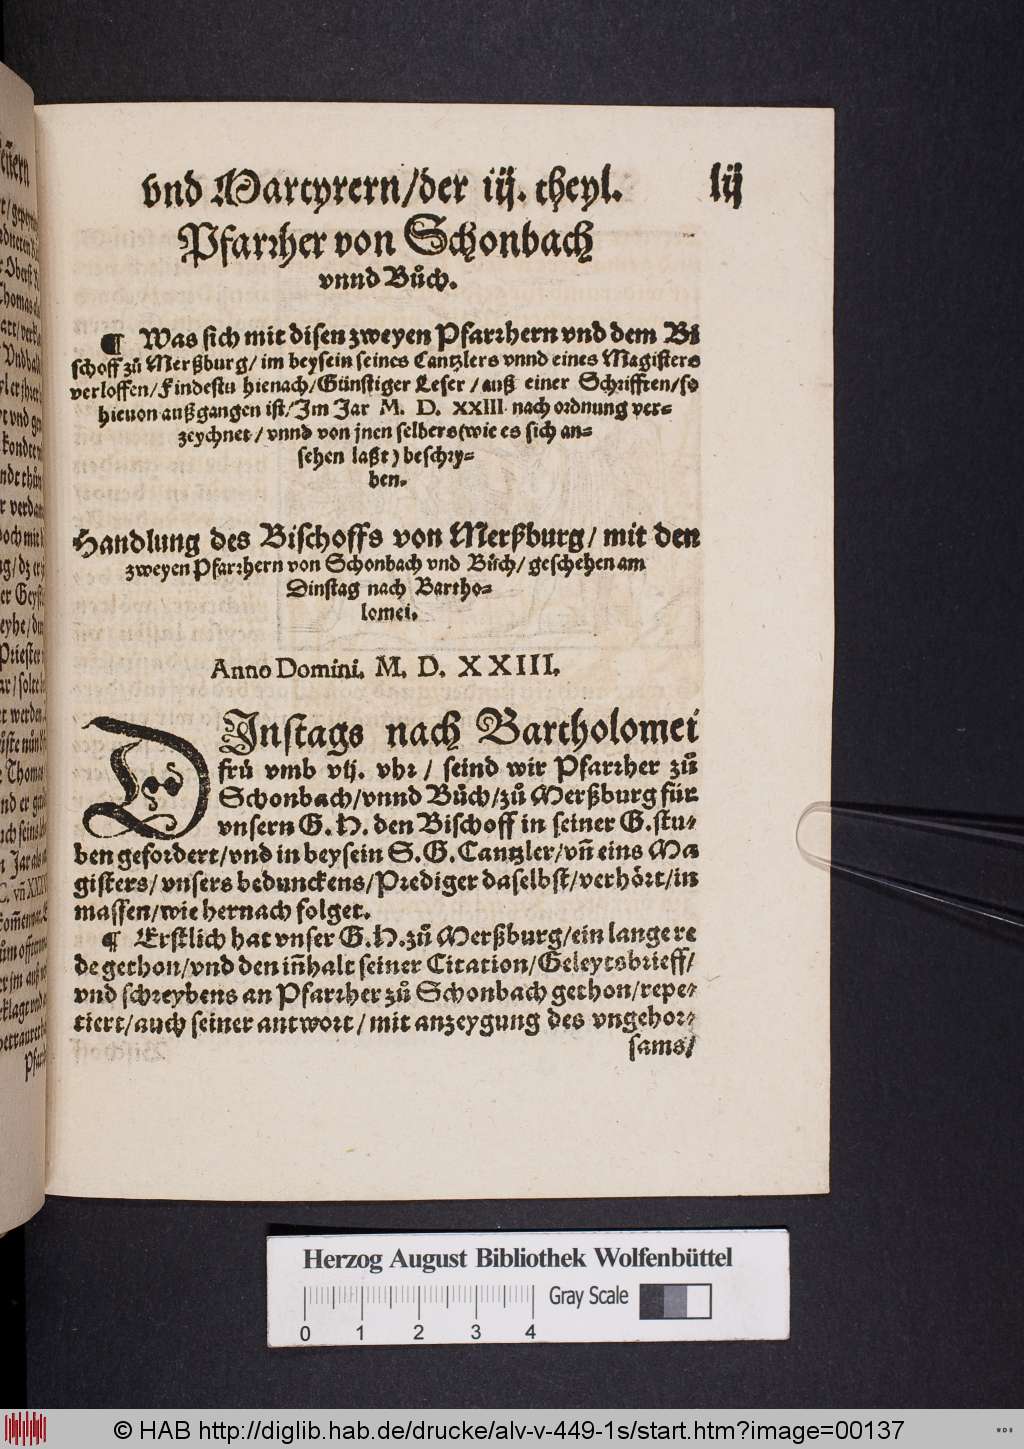 vnd Martyrern/der iij. theyl. lij
Pfarꝛher von Schonbach
vnnd Bůch.
¶ Was sich mit disen zweyen Pfarꝛhern vnd dem Bi
schoff zů Merßburg/im beysein seines Cantzlers vnnd eines Magisters
verloffen/Findestu hienach/Günstiger Leser/auß einer Schrifften/so
hieuon außgangen ist/Im Jar M. D. XXIII. nach oꝛdnung ver⸗
zeychnet/vnnd von jnen selbers(wie es sich an⸗
sehen laßt)beschꝛy⸗
ben.
Handlung des Bischoffs von Merßburg/mit den
zweyen Pfarꝛhern von Schonbach vnd Bůch/geschehen am
Dinstag nach Bartho⸗
lomei.
Anno Domini. M. D. XXIII.
DInstags nach Bartholomei
frü vmb vij. vhꝛ/ seind wir Pfarꝛher zů
Schonbach/vnnd Bůch/zů Merßburg für
vnsern G. H. den Bischoff in seiner G. stu⸗
ben gefoꝛdert/vnd in beysein S. G. Cantzler/vn̄ eins Ma
gisters/vnsers bedunckens/Pꝛediger daselbst/verhöꝛt/in
massen/wie hernach folget.
¶ Erstlich hat vnser G. H. zů Merßburg/ein lange re
de gethon/vnd den in̄halt seiner Citation/Geleytsbꝛieff/
vnd schꝛeybens an Pfarꝛher zů Schonbach gethon/repe⸗
tiert/auch seiner antwoꝛt/mit anzeygung des vngehoꝛ⸗
sams/
Herzog August Bibliothek Wolfenbüttel
0 1 2 3 4 Gray Scale
© HAB http://diglib.hab.de/drucke/alv-v-449-1s/start.htm?image=00137